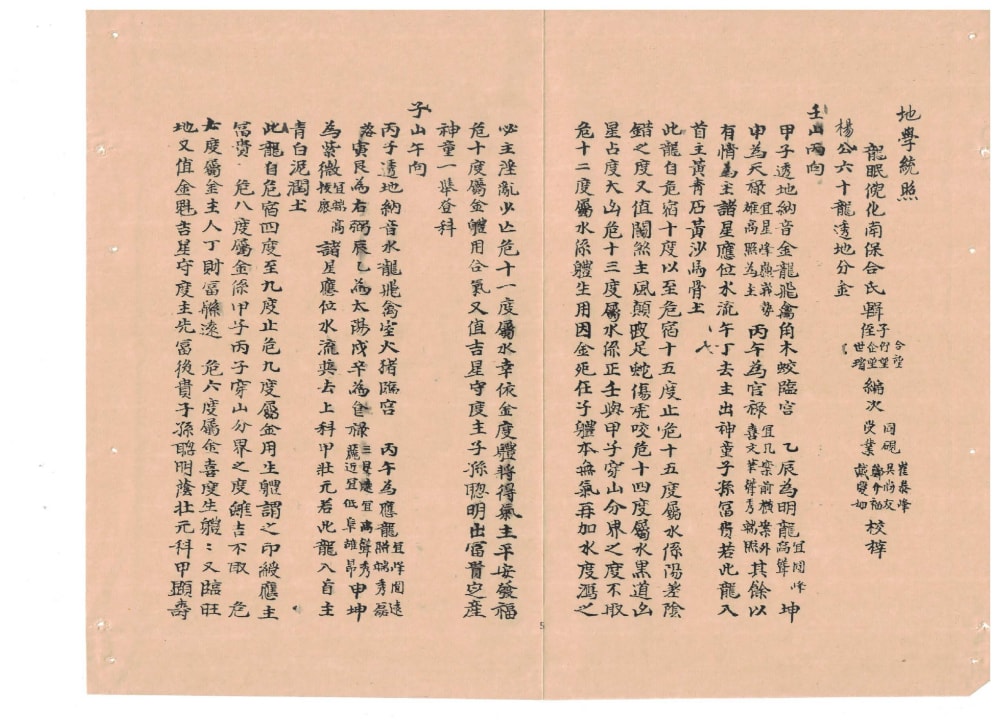 地學統照
龍眠倪化南保合氏輯 侄子 行望 合望 企望 世瑨 編次 同硯 受業 崔泰峰 吳尚友 校梓
楊公六十龍透地分金
壬山丙向
甲子透地納音金龍飛禽角木蛟臨宮 乙辰為明龍 宜園峰高聳 坤
申為天祿 宜星峰雄高照為主 丙午為官祿 宜几案前橫案外喜文筆聳秀端照 其餘以
有情為主諸星應位水流午丁去主出神童子孫冨貴若此龍入
首主黃青石黃沙馬骨土
此龍自危宿十度以至危宿十五度止危十五度屬水係陽差陰
錯之度又值闇煞主風顛跛足蛇傷虎咬危十四度屬水黑道凶
星占度大凶危十三度屬水係正壬與甲子穿山分界之度不取
危十二度屬水係體生用因金死在子體本無氣再加水度瀉之
必主淫亂少亡危十一度屬水幸依金度體將得氣主平安發福
危十度屬金體用合氣又值吉星守度主子孫聰明出冨貴定產
神童一舉登科
子山午向
丙子透地納音水龍飛禽室火猪臨宮 丙午為應龍 宜峰圓遠
落寅艮為右弼辰乙為太陽戌辛為食祿 申坤
為紫微 宜端高 諸星應位水流巽去上科甲壯元若此龍入首主
青白泥潤土
此龍自危宿四度至九度止危九度屬金用生體謂之印綬應主
冨貴 危八度屬金係甲子丙子穿山分界之度雖吉不取 危
七度屬金主人丁財冨綿遠 危六度屬金喜度生體〻又臨旺
地又值金魁吉星守度主先冨後貴子孫聰明蔭壯元科甲顯壽
5